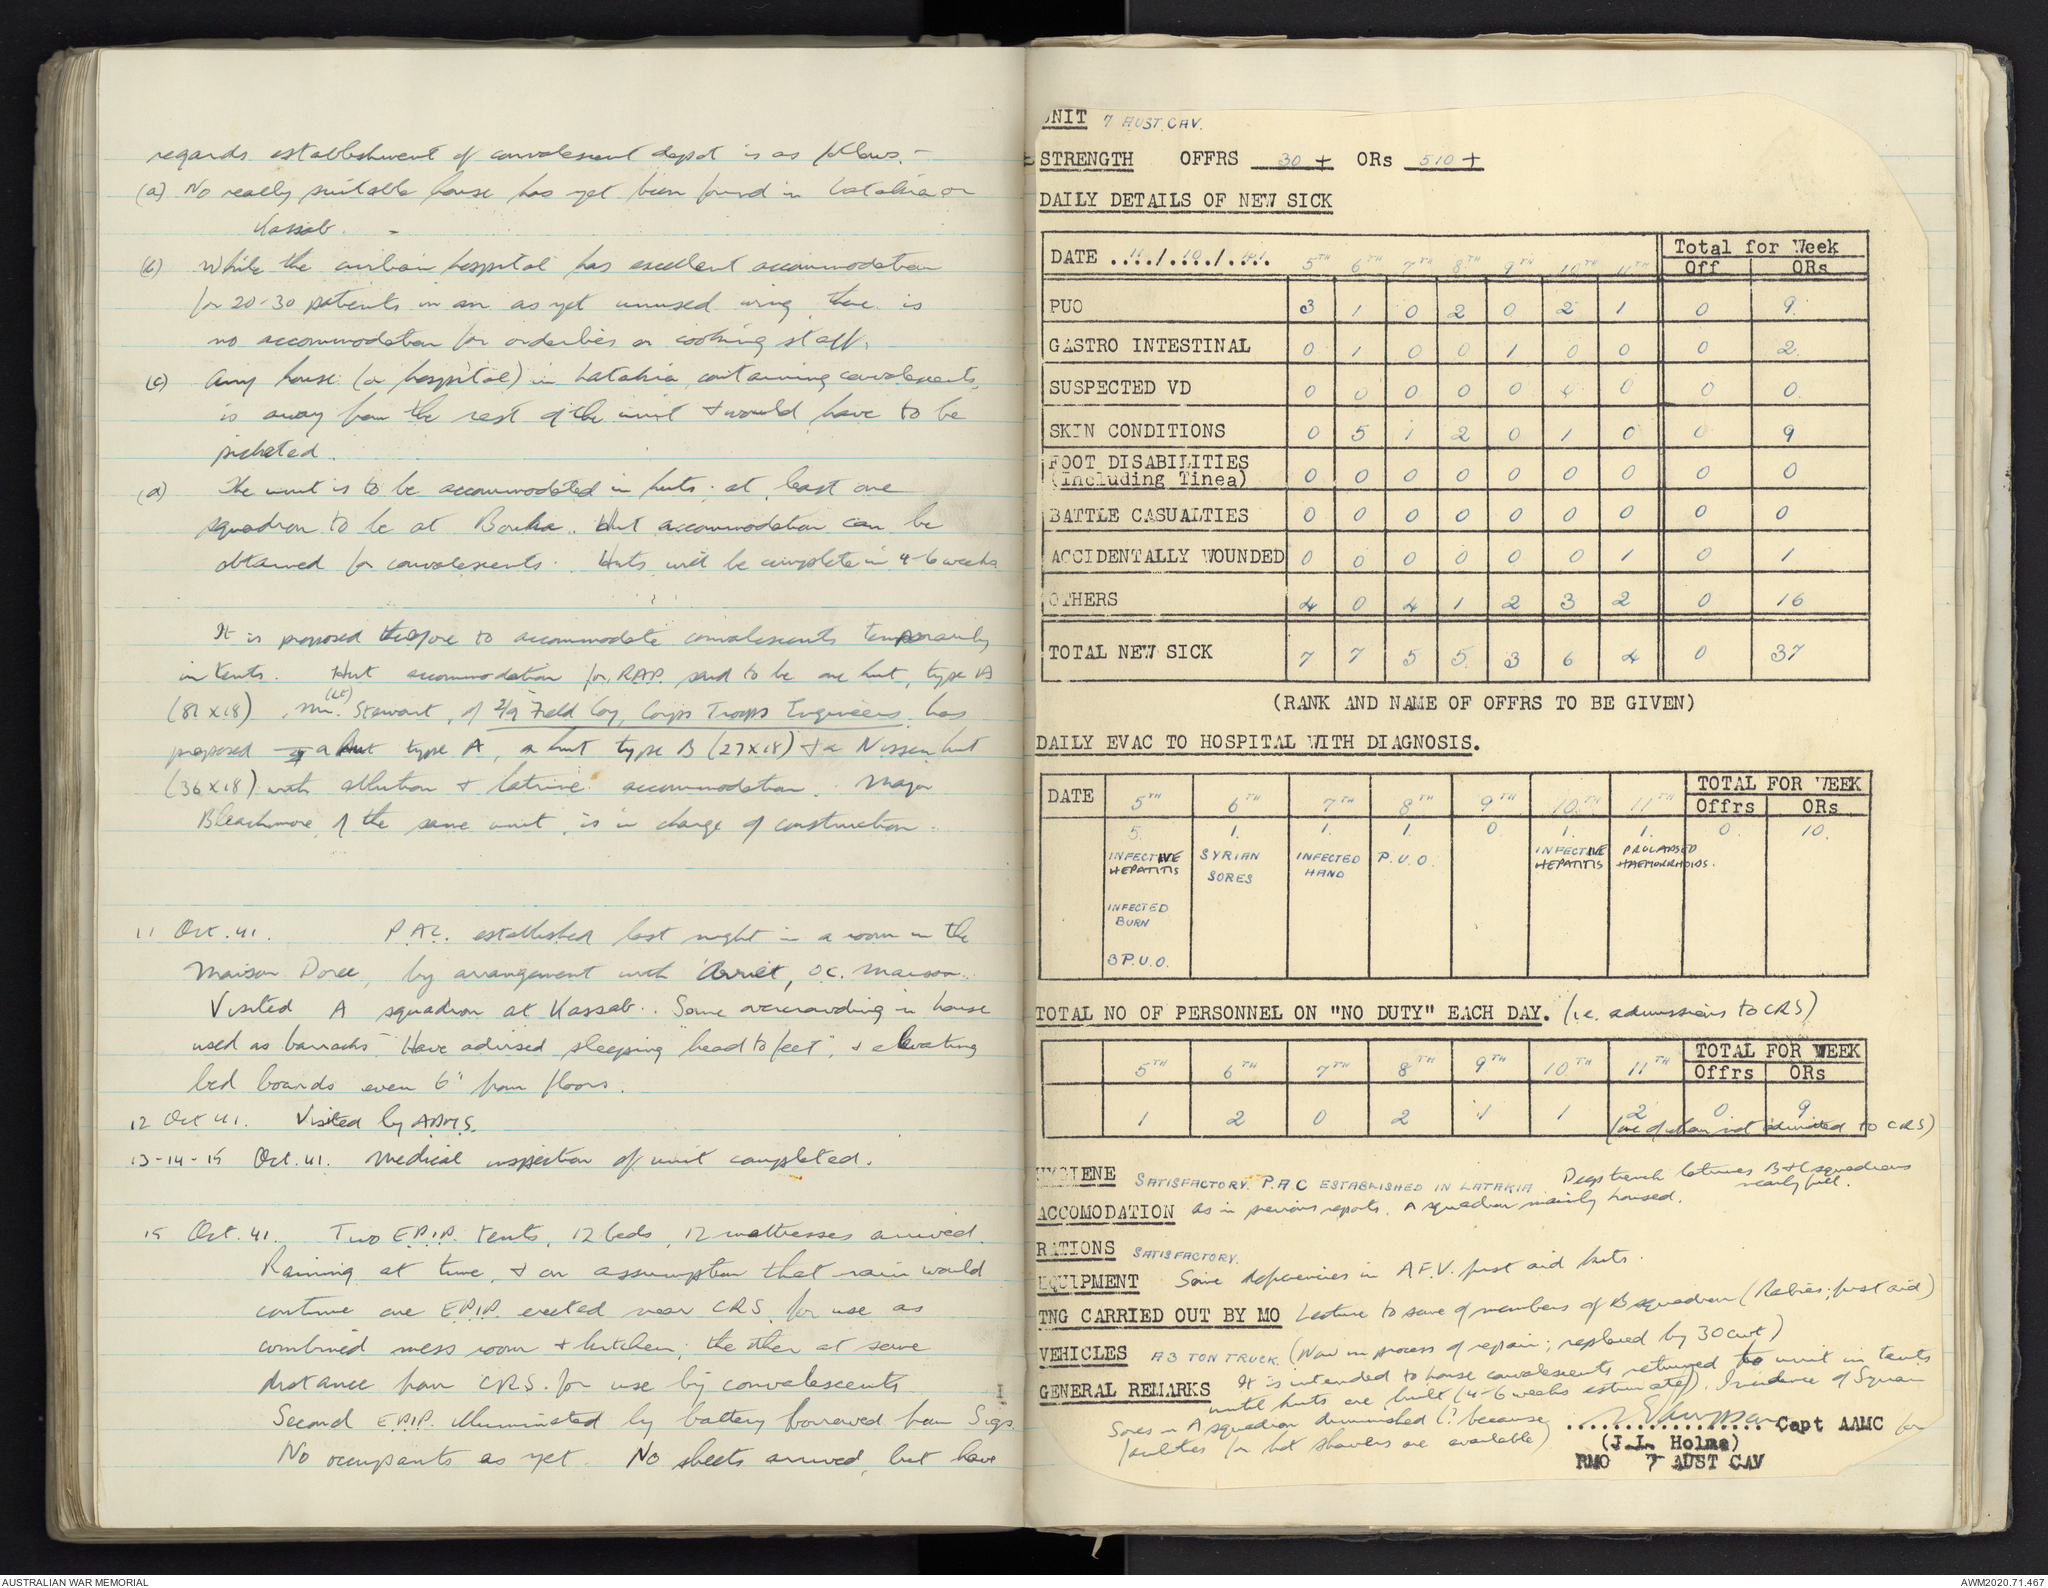 regards establishment of convalescent depot is as follows.-
(a) No really suitable house has yet been found in Latakia or
Kassab. -
(b) While the civilian hospital has excellent accommodation
for 20-30 patients in an as yet unused wing, there is
no accommodation for orderlies or cooking staff.
(c) Any house (or hospital) in Latakia, containing convalescents,
is away from the rest of the unit & would have to be
picketed.
(d) The unit is to be accommodated in huts; at least one
squadron to be at Bouka. Hut accommodation can be
obtained for convalescents. Huts will be complete in 4-6 weeks
It is proposed therefore to accommodate convalescents temporarily
in tents. Hut accommodation for RAP. said to be one hut, type A
(81 x 18). Mr. (Lt) Stewart, of 2/9 Field Coy, Corps Troops Engineers has
proposed a hut type A, a hut type B (27x18) & a Nissen hut
(36x18) with ablution & latrine accommodation. Major
Bleachmore, of the same unit, is in charge of construction.
11 Oct. 41. P.A.C. established last night in a room in the
Maison Doree, by arrangement with Arriet, OC. Maison.
Visited A squadron at Kassab. Some overcrowding in house
used as barracks. Have advised sleeping "head to feet", & elevating
bed boards even 6" from floors.
12 Oct 41. Visited by ADMS.
13-14-15 Oct. 41. Medical inspection of unit completed.
15 Oct. 41. Two E.P.I.P. tents, 12 beds, 12 mattresses arrived.
Raining at time, & on assumption that rain would
continue one E.P.I.P. erected near CRS. for use as
combined mess room & kitchen; the other at some
distance from CRS. for use by convalescents
Second E.P.I.P. illuminated by battery borrowed from Sigs.
No occupants as yet. No sheets arrived, but have
UNIT 7 AUST. CAV.
STRENGTH OFFRS 30 + ORs 510 +
DAILY DETAILS OF NEW SICK
DATE 11/10/41. 5TH 6TH 7TH 8TH 9TH 10TH 11TH Total for Week
Off ORs
PUO 3 1 0 2 0 2 1 0 9
GASTRO INTESTINAL 0 1 0 0 1 0 0 0 2
SUSPECTED VD 0 0 0 0 0 0 0 0 0
SKIN CONDITIONS 0 5 1 2 0 1 0 0 9
FOOT DISABILITIES
(Including Tinea) 0 0 0 0 0 0 0 0 0
BATTLE CASUALTIES 0 0 0 0 0 0 0 0 0
ACCIDENTALLY WOUNDED 0 0 0 0 0 0 1 0 1
OTHERS 4 0 4 1 2 3 2 0 16
TOTAL NEW SICK 7 7 5 5 3 6 4 0 37
(RANK AND NAME OF OFFRS TO BE GIVEN)
DAILY EVAC TO HOSPITAL WITH DIAGNOSIS.
DATE 5TH 6TH 7TH 8TH 9TH 10TH 11TH TOTAL FOR WEEK
Offrs ORs
5. 1. 1. 1. 0 1. 1. 0. 10.
INFECTIVE SYRIAN INFECTED P.U.O. INFECTIVE PROLAPSED
HEPATITIS SORES HAND HEPATITIS HAEMORRHOIDS.
INFECTED
BURN
3 P.U.O.
TOTAL NO OF PERSONNEL ON "NO DUTY" EACH DAY. (i.e. admissions to CRS)
5TH 6TH 7TH 8TH 9TH 10TH 11TH TOTAL FOR WEEK
Offrs ORs
1 2 0 2 1 1 2 0 9
(one of whom not admitted to CRS)
HYGIENE SATISFACTORY. P.A.C ESTABLISHED IN LATAKIA Deep trench latrines B & C squadrons
nearly full.
ACCOMODATION as in previous reports. A squadron mainly housed.
RATIONS SATISFACTORY.
EQUIPMENT Some deficiencies in A.F.V. first aid kits.
TNG CARRIED OUT BY MO Lecture to some of members of B squadron (Rabies; first aid)
VEHICLES A 3 TON TRUCK. (Now in process of repair; replaced by 30 cwt)
GENERAL REMARKS It is intended to house convalescents returned to unit in tents
until huts are built (4-6 weeks estimated). Incidence of Syrian
Sores in A squadron diminished (? because
facilities for hot showers are available)
Capt AAMC for
(J.L. Holme)
RMO 7 AUST CAV
AUSTRALIAN WAR MEMORIAL
AWM2020.71.467